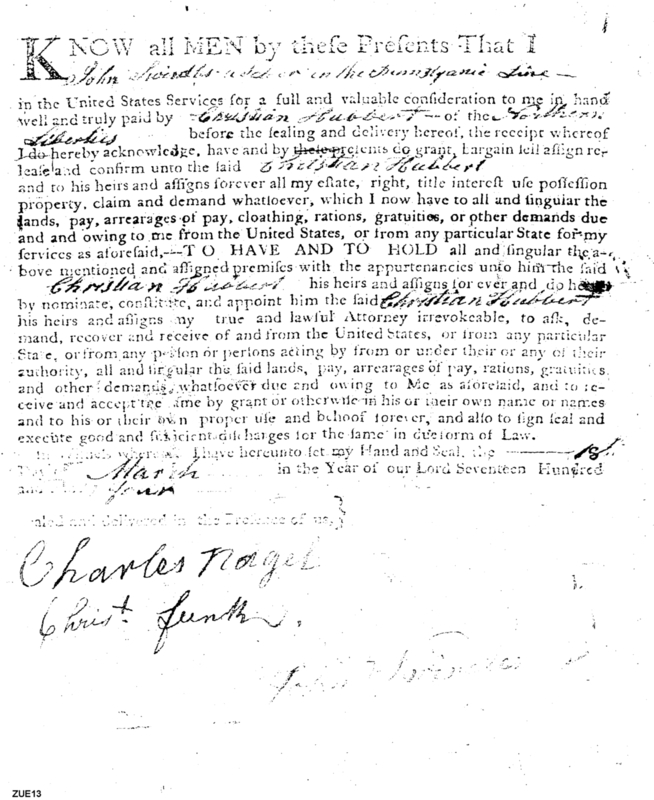 KNOW all MEN by theſe Preſents That I
John a in the Line
in the United States Services for a full and valuable conſideration to me in hand
well and truly paid by Chriſtian Hubbert of the Northern
Liberties before the ſealing and delivery hereof, the receipt whereof
I do hereby acknowledge, have and by theſe preſents do grant, bargain ſell aſſign re-
leaſe and confirm unto the ſaid Chriſtian Hubbert
and to his heirs and aſſigns forever all my eſtate, right, title intereſt uſe poſſeſſion
property, claim and demand whatſoever, which I now have to all and ſingular the
lands, pay, arrearages of pay, cloathing, rations, gratuities, or other demands due
and and owing to me from the United States, or from any particular State for my
ſervices as aforeſaid,—TO HAVE AND TO HOLD all and ſingular the a-
bove mentioned and aſſigned premiſes with the appurtenancies unto him the ſaid
Chriſtian Hubbert his heirs and aſſigns for ever and do
by nominate, conſtitute, and appoint him the ſaid Chriſtian Hubbert
his heirs and aſſigns my true and lawful Attorney irrevokeable, to aſk, de-
mand, recover and receive of and from the United States, or from any particular
State, or from any perſon or perſons acting by from or under their or any of their
authority, all and ſingular the ſaid lands, pay, arrearages of pay, rations, gratuities
and other demands, whatſoever due and owing to Me as aforeſaid, and to re-
ceive and accept the ſame by grant or otherwiſe in his or their own name or names
and to his or their own proper uſe and behoof forever, and alſo to ſign ſeal and
execute good and ſufficient diſcharges for the ſame in due form of Law.
I have hereunto ſet my Hand and Seal, the
March in the Year of our Lord Seventeen Hundred
and four
and delivered in the Preſence of us,
Charles Nagel
Chriſt. Funk
John
ZUE13